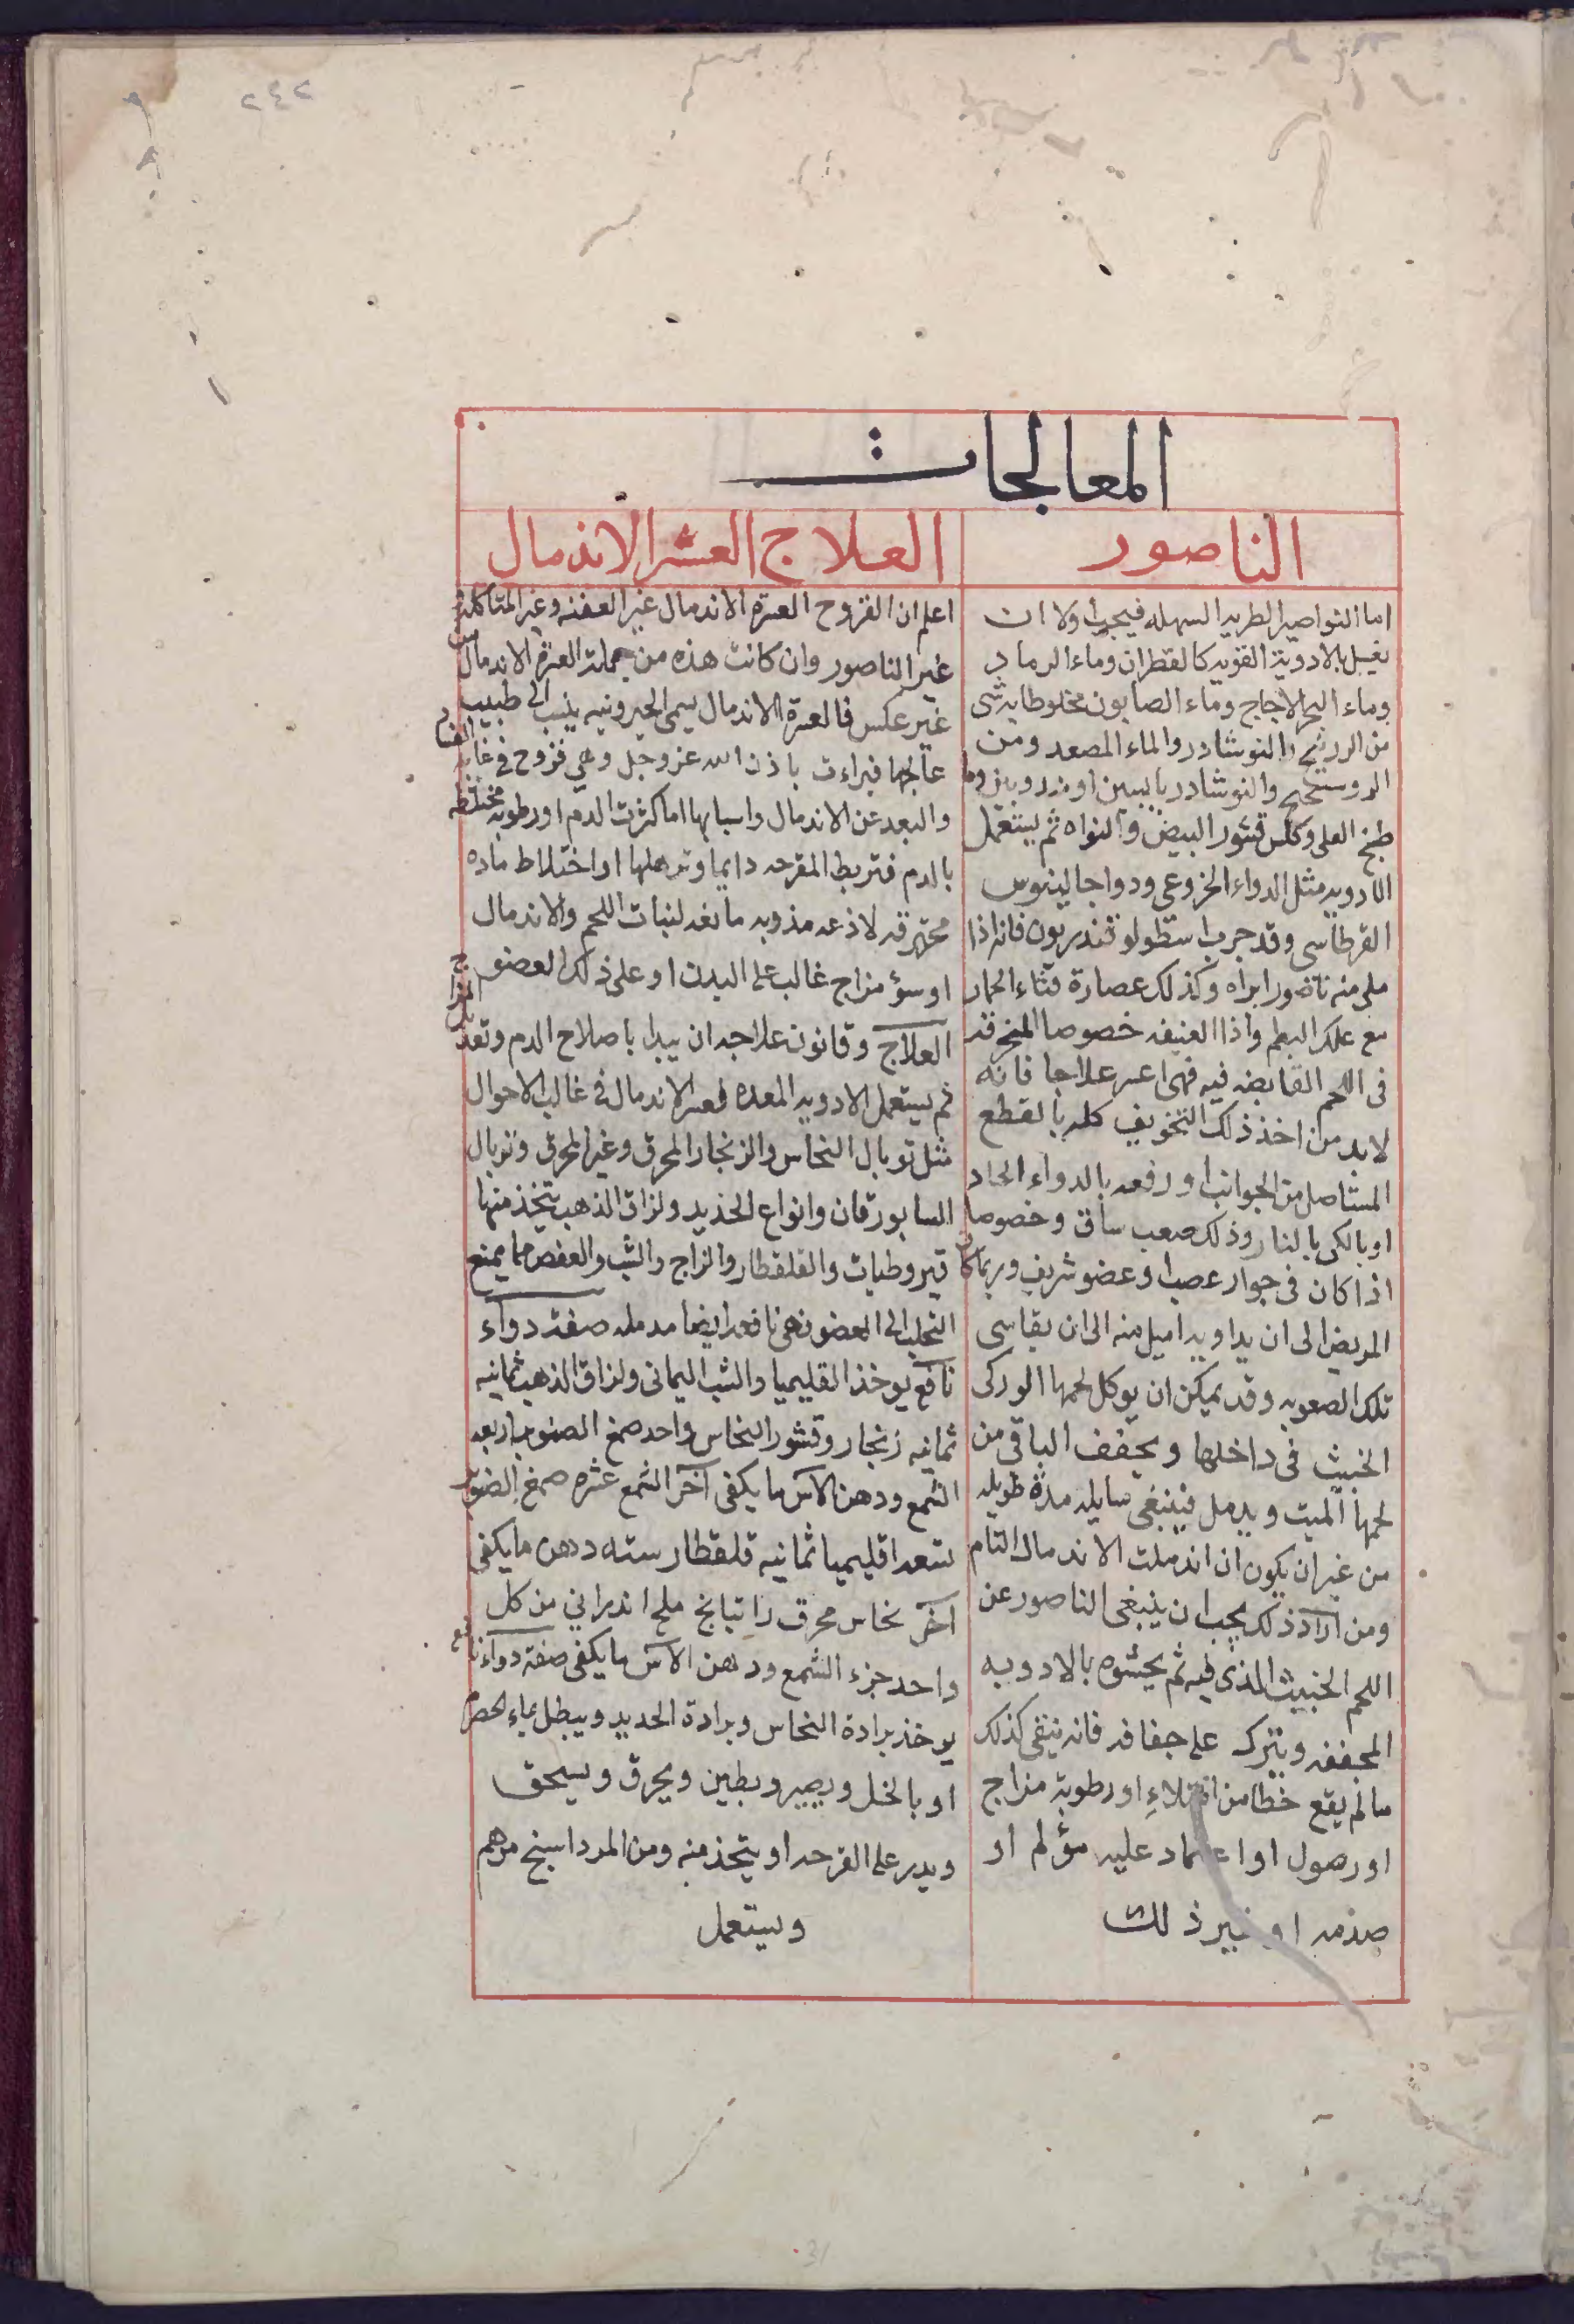 ٢٤٢
المعالجات
الناصور
اما النواصير الطريه السهله فيجب اولا ان
يغسل بالادوية القويه كالقطران وماء الرماد
وماء البحر الاجاج وماء الصابون مخلوطا به شى
من الزرنيخ والنوشادر والماء المصعد ومن
الروسختج والنوشادر يابسين او مذرو
طبخ العلى وكلس قشور البيض والنواه ثم يستعمل
الادويه مثل الدواء الخزوعى ودوا جالينوس
القرطاسى وقد جرب اسطولوقندريون فانه اذا
ملى منه ناصور ابراه وكذلك عصارة قثاء الحمار
مع علك البطم واذا العنيفه خصوصا المنخرقه
فى اللحم القابضه فيه فهى اعسر علاجا فانه
لا بد من اخذ ذلك التخويف كله بالقطع
المستاصل من الجوانب او رفعه بالدواء الحاد
او بالكى بالنار وذلك صعب ساق وخصوصا
اذا كان فى جوار عصب او عضو شريف وربما كان
المريض الى ان يداويه اميل منه الى ان يقاسى
تلك الصعوبه وقد يمكن ان يوكل لحمها الوركى
الخبيث فى داخلها ويجفف الباقى من
لحمها الميت ويدمل فينبغى سايله مدة طويله
من غير ان يكون ان اندملت الاندمال التام
ومن اراد ذلك يجب ان ينبغى الناصور عن
اللحم الخبيث الذى فيه ثم يحشوه بالادويه
المجففه ويترك على جفافه فانه ينقى كذلك
ما لم يقع خطا من امتلاء او رطوبة مزاج
او رهول او اعتماد عليه مؤلم او
صدمه او غير ذلك
العلاج العسر الاندمال
اعلم ان القروح العسرة الاندمال غير العفنه وغير المتاكله
غير الناصور وان كانت هذه من جملة العسرة الاندمال من
غير عكس فالعسرة الاندمال يسمى الخيرونيه ينسب الى طبيب
عالجها فبراءت باذن الله عز وجل وهى قروح فى غايه الفساد
والبعد عن الاندمال واسبابها اما كثرت الدم او رطوبه مختلطه
بالدم فتربط المقرحه دايما وترهلها او اختلاط ماده
محترقه لاذعه مذوبه مانعه لنبات اللحم والاندمال
او سؤ مزاج غالب على البدن او على ذلك العضو
العلاج وقانون علاجه ان يبدا باصلاح الدم وتعديل المزاج
ثم يستعمل الادويه المعده لعسر الاندمال فى غالب الاحوال
مثل توبال النحاس والزنجار المحرق وغير المحرق وتوبال
السابورقان وانواع الحديد ولزاق الذهب يتخذ منها
قيروطيات والقلقطار والزاج والشب والعفص مما يمنع
التحلب الى العضو فهى نافعه ايضا مدمله صفة دواء
نافع يوخذ القليميا والشب اليمانى ولزاق الذهب ثمانيه
ثمانيه زنجار وقشور النحاس واحد صمغ الصنوبر اربعه
الشمع ودهن الاس ما يكفى آخر الشمع عشره صمغ الصنوبر
تسعه اقليميا ثمانيه قلقطار سته ودهن ما يكفى
آخر نحاس محرق راتيانج ملح اندرانى من كل
واحد جزء الشمع ودهن الاس ما يكفى صفة دواء نافع
يوخذ برادة النحاس وبرادة الحديد ويبطل بماء الحصرم
او بالخل ويصير وبطين ويحرق ويسحق
ويدر على القرحه او يتخذ منه ومن المرداسنج مرهم
ويستعمل